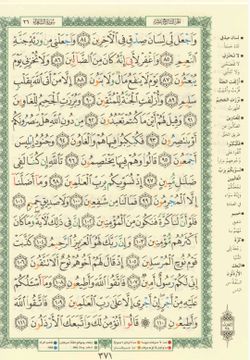 سُورَةُ الشُّعَرَاءِ ٢٦
وَٱجْعَل لِّى لِسَانَ صِدْقٍ فِى ٱلْءَاخِرِينَ ٨٤ وَٱجْعَلْنِى مِن وَرَثَةِ جَنَّةِ
ٱلنَّعِيمِ ٨٥ وَٱغْفِرْ لِأَبِىٓ إِنَّهُۥ كَانَ مِنَ ٱلضَّآلِّينَ ٨٦ وَلَا تُخْزِنِى يَوْمَ
يُبْعَثُونَ ٨٧ يَوْمَ لَا يَنفَعُ مَالٌ وَلَا بَنُونَ ٨٨ إِلَّا مَنْ أَتَى ٱللَّهَ بِقَلْبٍ
سَلِيمٍ ٨٩ وَأُزْلِفَتِ ٱلْجَنَّةُ لِلْمُتَّقِينَ ٩٠ وَبُرِّزَتِ ٱلْجَحِيمُ لِلْغَاوِينَ
٩١ وَقِيلَ لَهُمْ أَيْنَ مَا كُنتُمْ تَعْبُدُونَ ٩٢ مِن دُونِ ٱللَّهِ هَلْ يَنصُرُونَكُمْ
أَوْ يَنتَصِرُونَ ٩٣ فَكُبْكِبُوا۟ فِيهَا هُمْ وَٱلْغَاوُۥنَ ٩٤ وَجُنُودُ إِبْلِيسَ
أَجْمَعُونَ ٩٥ قَالُوا۟ وَهُمْ فِيهَا يَخْتَصِمُونَ ٩٦ تَٱللَّهِ إِن كُنَّا لَفِى
ضَلَٰلٍ مُّبِينٍ ٩٧ إِذْ نُسَوِّيكُم بِرَبِّ ٱلْعَٰلَمِينَ ٩٨ وَمَآ أَضَلَّنَآ
إِلَّا ٱلْمُجْرِمُونَ ٩٩ فَمَا لَنَا مِن شَٰفِعِينَ ١٠٠ وَلَا صَدِيقٍ حَمِيمٍ ١٠١
فَلَوْ أَنَّ لَنَا كَرَّةً فَنَكُونَ مِنَ ٱلْمُؤْمِنِينَ ١٠٢ إِنَّ فِى ذَٰلِكَ لَءَايَةً وَمَا كَانَ
أَكْثَرُهُم مُّؤْمِنِينَ ١٠٣ وَإِنَّ رَبَّكَ لَهُوَ ٱلْعَزِيزُ ٱلرَّحِيمُ ١٠٤ كَذَّبَتْ
قَوْمُ نُوحٍ ٱلْمُرْسَلِينَ ١٠٥ إِذْ قَالَ لَهُمْ أَخُوهُمْ نُوحٌ أَلَا تَتَّقُونَ ١٠٦
إِنِّى لَكُمْ رَسُولٌ أَمِينٌ ١٠٧ فَٱتَّقُوا۟ ٱللَّهَ وَأَطِيعُونِ ١٠٨ وَمَآ أَسْـَٔلُكُمْ
عَلَيْهِ مِنْ أَجْرٍ إِنْ أَجْرِىَ إِلَّا عَلَىٰ رَبِّ ٱلْعَٰلَمِينَ ١٠٩ فَٱتَّقُوا۟ ٱللَّهَ
وَأَطِيعُونِ ١١٠ قَالُوٓا۟ أَنُؤْمِنُ لَكَ وَٱتَّبَعَكَ ٱلْأَرْذَلُونَ ١١١
٣٧١